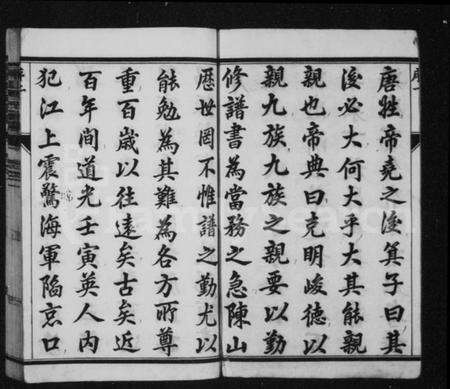 唐姓帝堯之後箕子曰其
後必大何大乎大其能親
親也帝典曰克明峻德以
親九族九族之親要以勤
修譜書為當務之急陳山
歷世罔不惟譜之勤尤以
能勉為其難為各方所尊
重百歲以往遠矣士矣近
百年間道光壬寅英人內
犯江上震驚海軍陷京口